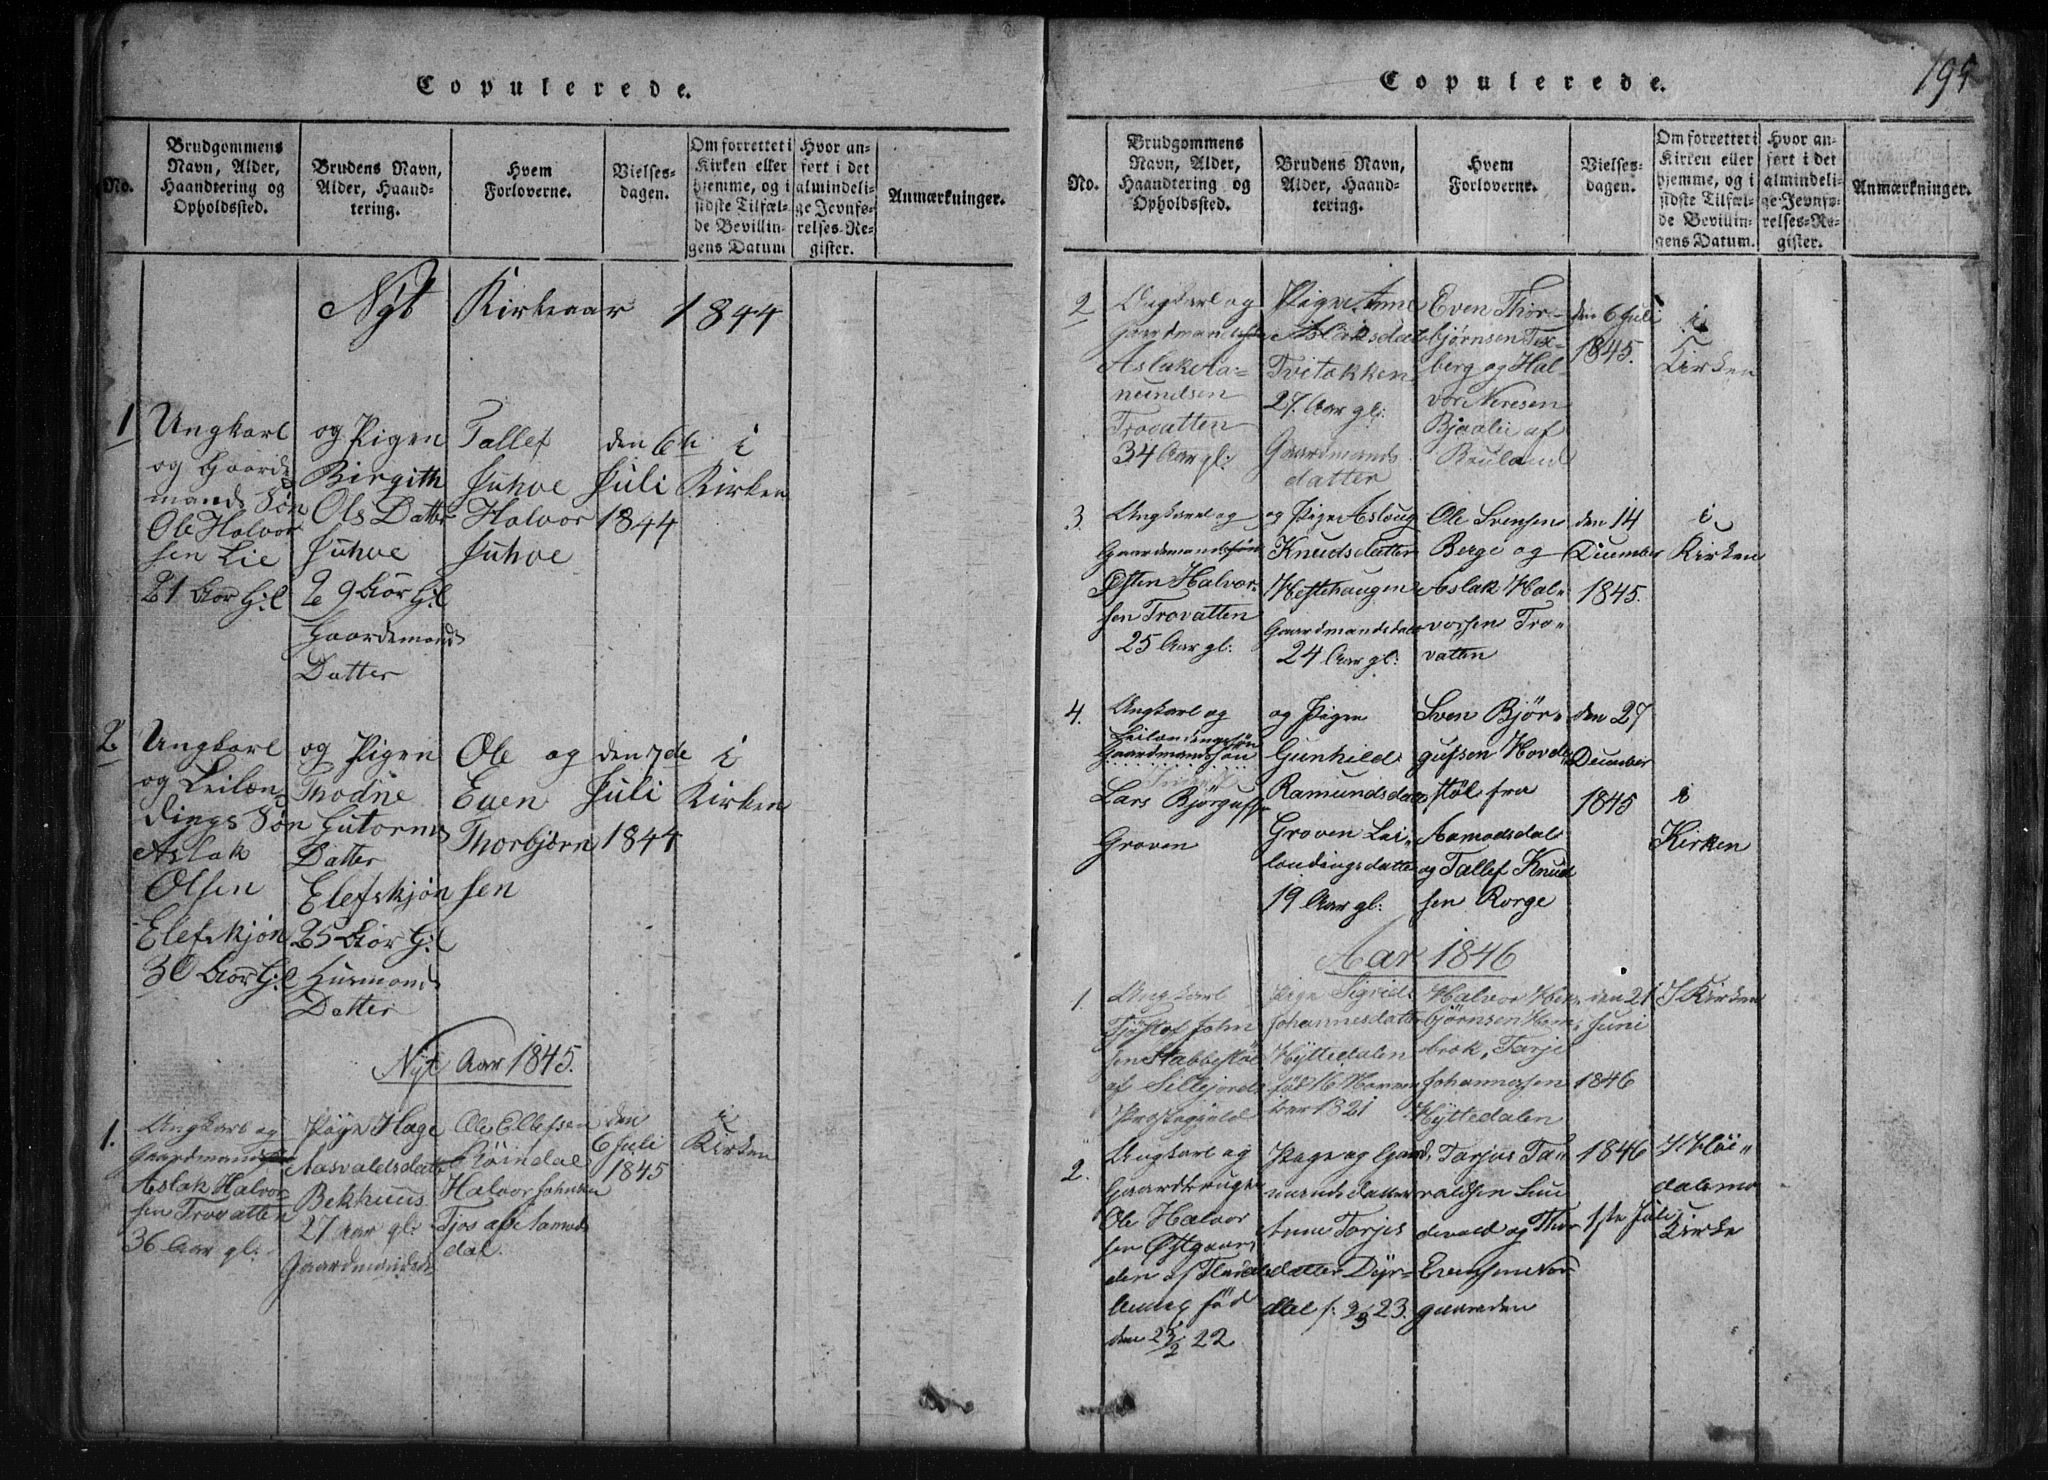 Copulerede.
No.
Brudgommens
Navn, Alder,
Haandtering og
Opholdssted.
Brudens Navn,
Alder, Haand-
tering.
Hvem
Forloverne.
Vielses-
dagen.
Om forrettet i
Kirken eller
hjemme, og i
sidste Tilfæl-
de Bevillin-
gens Datum
Hvor an-
ført i det
almindeli-
ge Jevnfø-
relses-Re-
gister.
Anmærkninger.
Nÿt Kirkeaar 1844
1
Ungkarl
og Gaard
mands Søn
Ole Halvor
sen Lie
21 Aar Gl
og Pigen
Birgith
Ols Datter
Juhve
29 Aar Gl
Gaardemands
Datter
Tallef
Juhve
Halvor
Juhve
den 6te
Juli
1844
i
Kirken
2
Ungkarl
og Leilæn
dings Søn
Aslak
Olsen
Elefskjøn
30 Aar Gl
og Pigen
Thodne
Gutorms
Datter
Elefskjøn
25 Aar Gl
Husmands
Datter
Ole og
Even
Thorbjørn
sen
den 7de
Juli
1844
i
Kirken
Nyt Aar 1845.
1.
Ungkarl og
Gaardmand
Aslak Halvor-
sen Trovatten
36 Aar gl:
Pige Hæge
Aasvaldsdatter
Bekhuus
27 Aar gl:
Gaardmandsd
Ole Ellefsen
Røindal
Halvor Johnsen
Tjos af Aamods
dal.
den
6 Juli
1845
i
Kirken
195
Copulerede.
No.
Brudgommens
Navn, Alder,
Haandtering og
Opholdssted.
Brudens Navn,
Alder, Haand-
tering.
Hvem
Forloverne.
Vielses-
dagen.
Om forrettet i
Kirken eller
hjemme, og i
sidste Tilfæl-
de Bevillin-
gens Datum.
Hvor an-
ført i det
almindeli-
ge Jevnfø-
relses-Re-
gister.
Anmærkninger.
2
Ungkarl og
Gaardmand
Aslak Aa-
nundsen
Trovatten
34 Aar gl:
Pige Anne
Aslaksdatt
Tvitækken
27. Aar gl:
Gaardmands
datter
Even Thor-
bjørnsen Tex-
berg og Hal-
vor Neresen
Bjaalie af
Rauland
den 6 Juli
1845.
i
Kirken
3.
Ungkarl og
Gaardmandssøn
Østen Halvor-
sen Trovatten
25 Aar gl:
og Pige Aslaug
Knudsdatter
Heftehaugen
Gaardmandsdatt
24 Aar gl:
Ole Svensen
Berge og
Aslak Hal-
vorsen Tro-
vatten
den 14
December
1845.
i
Kirken
4.
Ungkarl og
Leilændingssøn
Gaardmandssøn
Lars Bjørgufs
Groven
og Pigen
Gunhild
Ramundsdat
Groven Lei-
lændingsdatter
19 Aar gl:
Sven Bjør-
gufsen Hovde
støl fra
Aamodsdal
og Tallef Knud
sen Rorge
den 27
December
1845
i
Kirken
Aar 1846
1.
Ungkarl
Tjøstof John
sen Stabbestøl
af Sillejords
Præstegjeld
Pige Sigrid
Johannesdatter
Hÿttedalen
født 16 Novem
ber 1821
Halvor
bjørnsen
brok, Tarje
Johannessen
Hÿttedalen
den 21
Juni
1846
I Kirken
2.
Ungkarl og
Gaardbruger
Ole Halvor
sen Østgaar
den af Flatdals
Annex født
den 25/2 22
Pige og Gaard
mandsdatter
Anne Tarjes
datter Dÿr-
dal f: 2/3 23.
Tarjus Ta-
raldsen Sun
devald og Thor
Evensen Nor
gaarden
1846
1ste Juli
I Høi-
dalsmo
Kirke